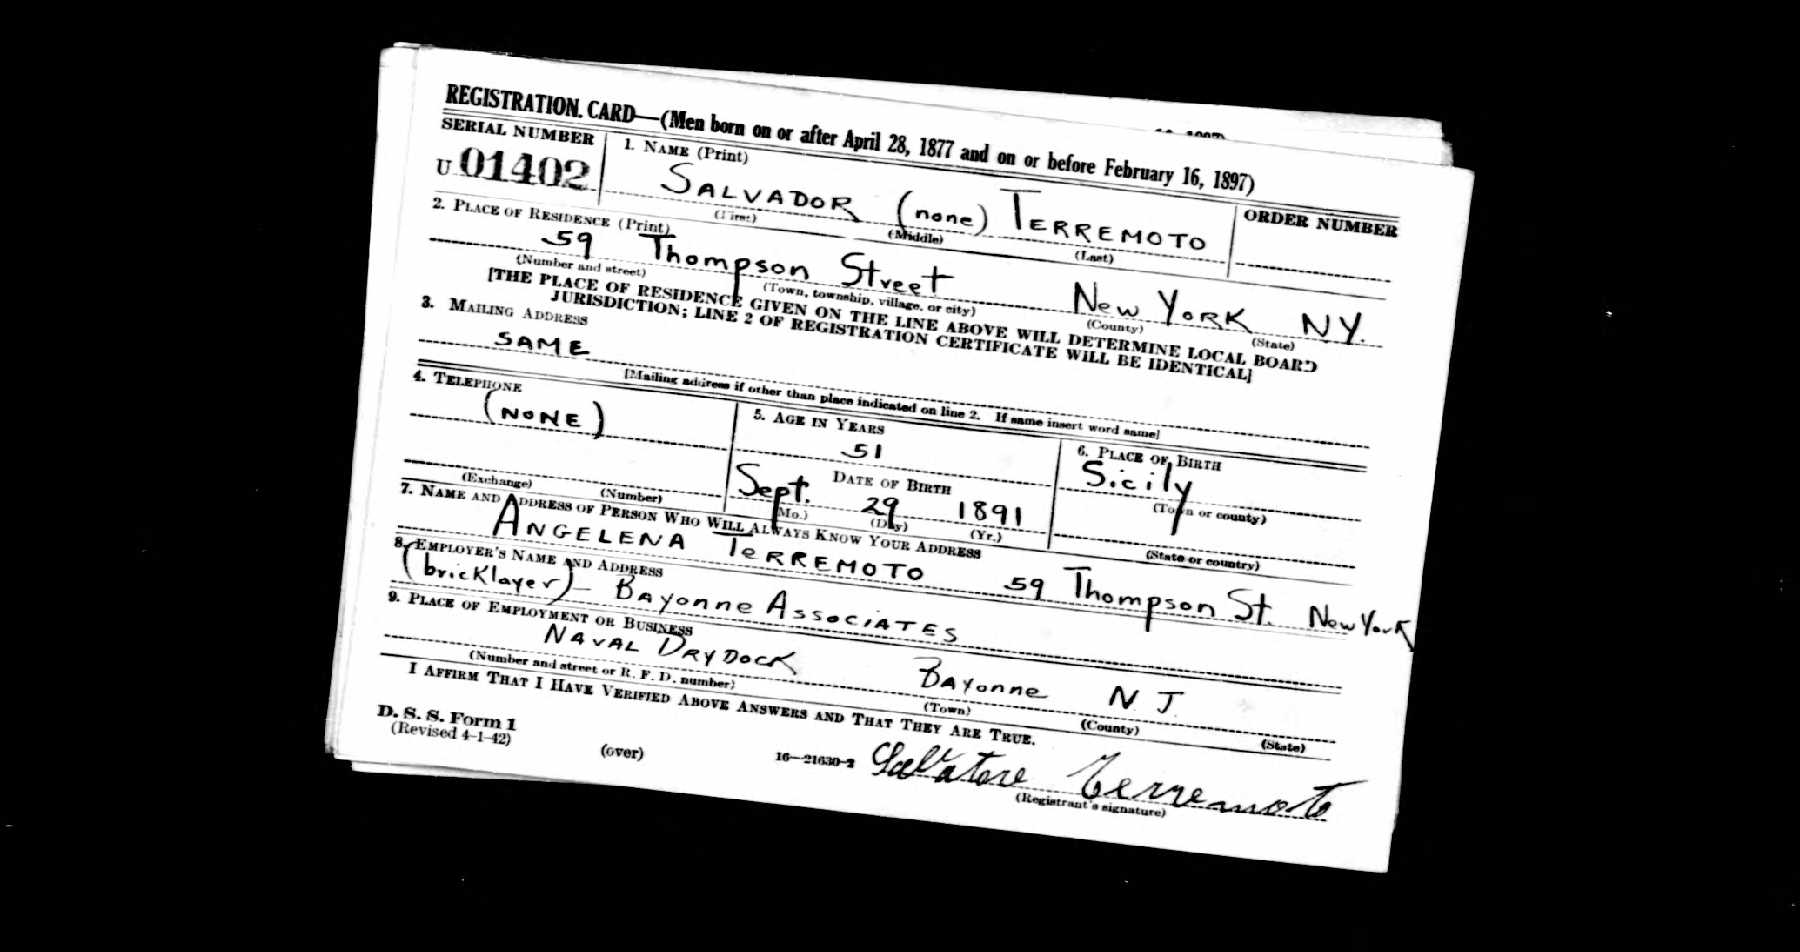 REGISTRATION CARD—(Men born on or after April 28, 1877 and on or before February 16, 1897)
SERIAL NUMBER
U 01402
1. NAME (Print)
SALVADOR (none) TERREMOTO
(First) (Middle) (Last)
ORDER NUMBER
2. PLACE OF RESIDENCE (Print)
59 Thompson Street New York N.Y.
(Number and street) (Town, township, village, or city) (County) (State)
[THE PLACE OF RESIDENCE GIVEN ON THE LINE ABOVE WILL DETERMINE LOCAL BOARD
JURISDICTION; LINE 2 OF REGISTRATION CERTIFICATE WILL BE IDENTICAL]
3. MAILING ADDRESS
SAME
[Mailing address if other than place indicated on line 2. If same insert word same]
4. TELEPHONE
(NONE)
(Exchange) (Number)
5. AGE IN YEARS
51
DATE OF BIRTH
Sept. 29 1891
(Mo.) (Day) (Yr.)
6. PLACE OF BIRTH
Sicily
(Town or county)
(State or country)
7. NAME AND ADDRESS OF PERSON WHO WILL ALWAYS KNOW YOUR ADDRESS
ANGELENA TERREMOTO 59 Thompson St. New York
8. EMPLOYER'S NAME AND ADDRESS
(bricklayer) - Bayonne Associates
9. PLACE OF EMPLOYMENT OR BUSINESS
NAVAL DRYDOCK Bayonne N.J.
(Number and street or R. F. D. number) (Town) (County) (State)
I AFFIRM THAT I HAVE VERIFIED ABOVE ANSWERS AND THAT THEY ARE TRUE.
D. S. S. Form 1
(Revised 4-1-42)
(over)
16—21630-2
Salvatore Terremoto
(Registrant's signature)